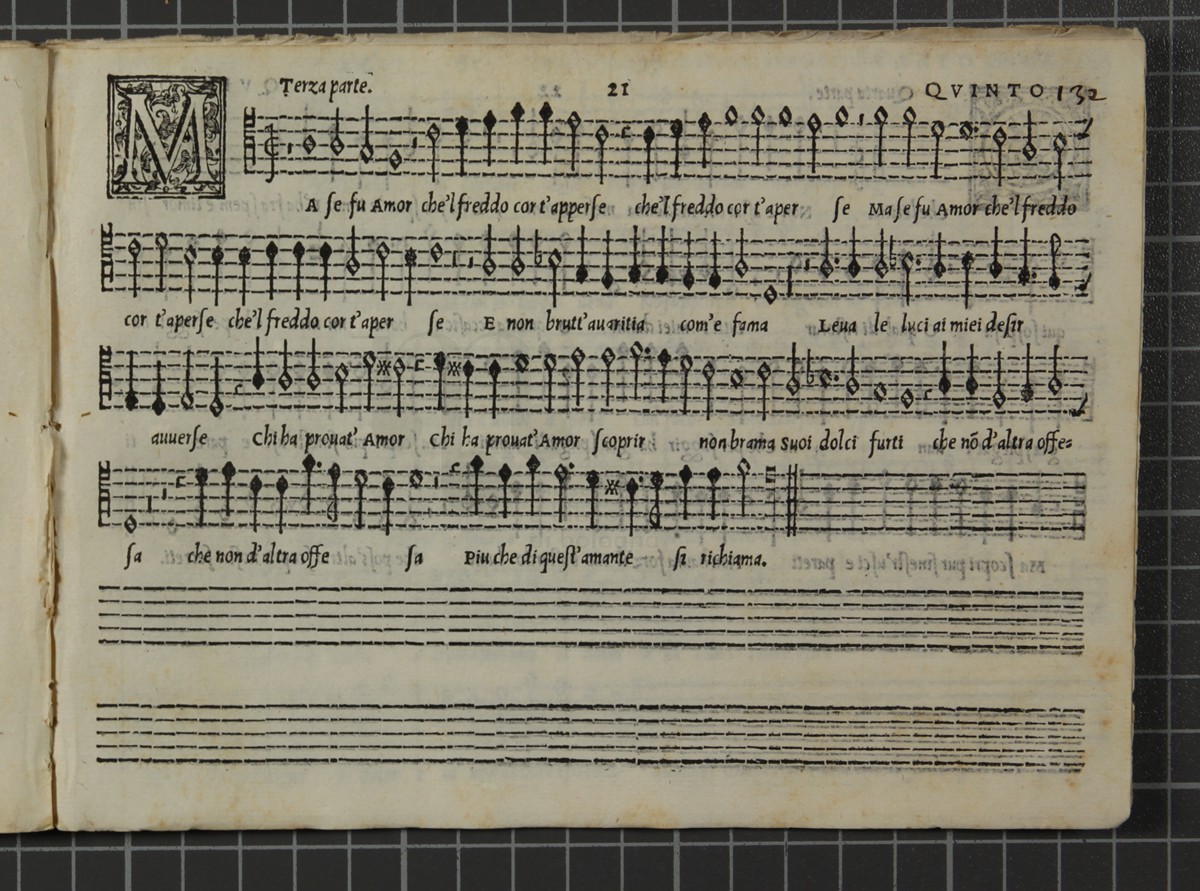 Terza parte. 21 QVINTO 132
MA se fu Amor che'l freddo cor t'apperse che'l freddo cor t'aper se Ma se fu Amor che'l freddo
cor t'aperse che'l freddo cor t'aper se E non brutt'auaritia com'e fama Leua le luci ai miei desir
auuerse Chi ha prouat' Amor Chi ha prouat' Amor scoprir non brama suoi dolci furti che nõ d'altra offe=
sa che non d'altra offe sa Piu che di quest'amante si richiama.